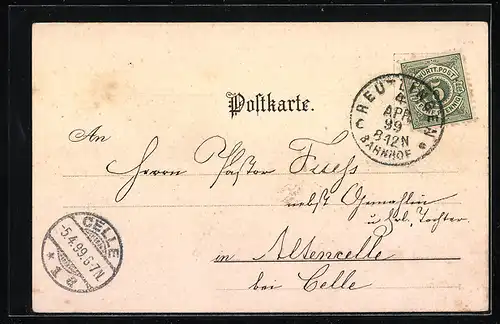 Postkarte.
K. WÜRTT. POST
5
REUTLINGEN
4
APR
99
8-12N
BAHNHOF
An
Herrn Pastor Fuess
nebst Gemahlin
u. Frl. Tochter
in Altencelle
bei Celle
CELLE
-5.4.99.6-7N.
* 1a